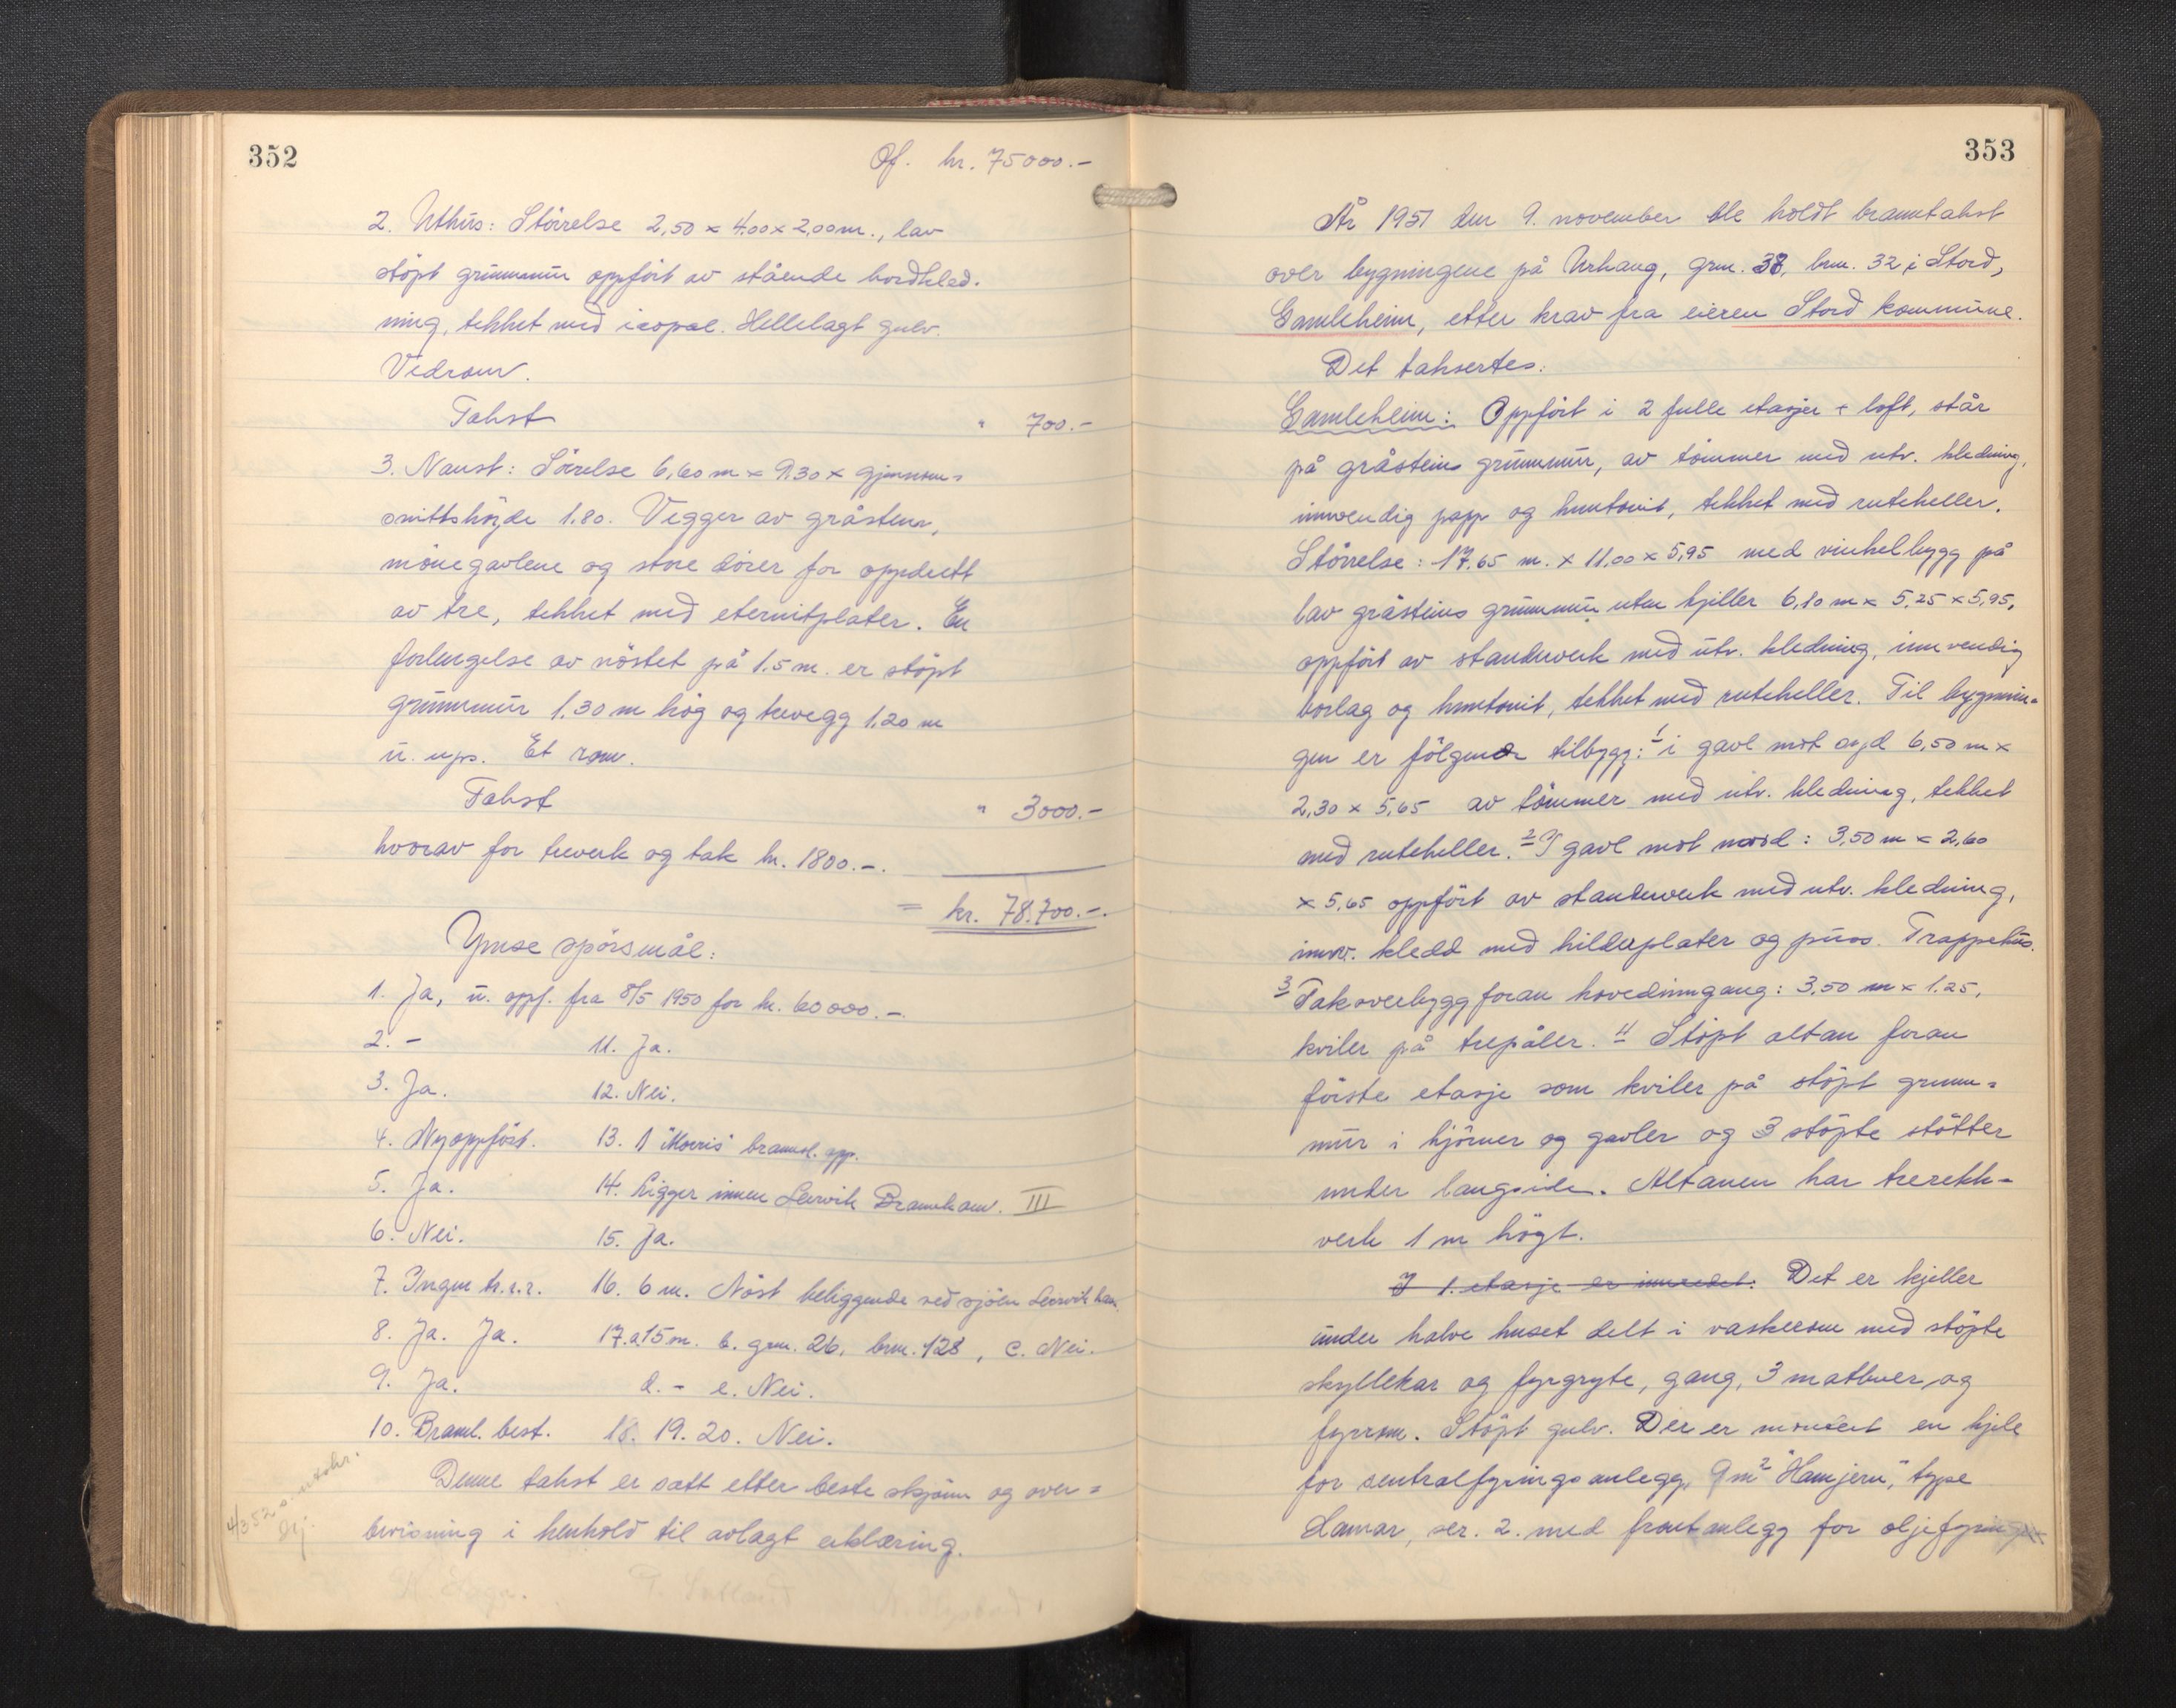 352
Of. kr. 75000.-
2. Uthus: Störrelse 2,50 x 4,00 x 2,00 m., lav
stöpt grunnmur oppfört av stående bordkled-
ning, tekket med icopal. Hellelagt gulv.
Vedrom.
Takst " 700.-
3. Naust: Sörrelse 6,60 m x 9,30 x gjennom-
snittshöyde 1.80. Vegger av gråstein,
mönegavlene og store dörer for oppdrett
av tre, tekket med eternitplater. En
forlengelse av nöstet på 1.5 m. er stöpt
grunnmur 1.30 m hög og trevegg 1,20 m
u. ups. Et rom.
Takst " 3000.-
hvorav for treverk og tak kr. 1800.-.
= kr. 78.700.-.
Ymse spörsmål:
1. Ja, u. oppf. fra 8/5 1950 for kr. 60000.-.
2. - 11. Ja.
3. Ja. 12. Nei.
4. Nyoppfört. 13. 1 "Morris" brannsl. app.
5. Ja. 14. Ligger innen Leirvik Brannkom. III
6. Nei. 15. Ja.
7. Ingen tr.s.r. 16. 6 m. Nöst beliggende ved sjöen Leirvik
8. Ja. Ja. 17. a. 15 m. b. grn. 26. brn. 128, c. Nei.
9. Ja. d. - e. Nei.
10. Brannl. best. 18. 19. 20. Nei.
Denne takst er satt etter beste skjönn og over-
bevisning i henhold til avlagt erklæring.
353
År 1951 den 9. november ble holdt branntakst
over bygningene på Urhaug, grn. 38, brn. 32 i Stord,
Gamleheim, etter krav fra eieren Stord kommune.
Det takseres:
Gamleheim: Oppfört i 2 fulle etasjer + loft, står
på gråsteins grunnmur, av tömmer med utv. kledning,
innvendig papp og huntonit, tekket med ruteheller.
Störrelse: 17.65 m. x 11,00 x 5,95 med vinkelbygg på
lav gråsteins grunnmur uten kjeller 6,10 m x 5,25 x 5,95,
oppfört av standerverk med utv. kledning, innvendig
borlag og huntonit, tekket med ruteheller. Til bygnin-
gen er fölgende tilbygg: 1 i gavl mot syd 6,50 m x
2,30 x 5,65 av tömmer med utv. kledning, tekket
med ruteheller. 2 I gavl mot nord: 3,50 m x 2,60
x 5,65 oppfört av standerverk med utv. kledning,
innv. kledd med hildaplater og puss. Trappehus.
3 Takoverbygg foran hovedinngang: 3,50 m x 1.25,
kviler på trepåler. 4 Stöpt altan foran
förste etasje som kviler på stöpt grunn-
mur i hjörner og gavler og 3 stöpte stötter
under langside. Altanen har trerekk-
verk 1 m högt.
I 1. etasje er innredet: Det er kjeller
under halve huset delt i vaskerom med stöpte
skyllekar og fyrgryte, gang, 3 matbuer og
fyrrom. Stöpt gulv. Der er montert en kjele
for sentralfyringsanlegg, 9 m² "Hamjern", type
Hamar, ser. 2. med frontanlegg for oljefyring